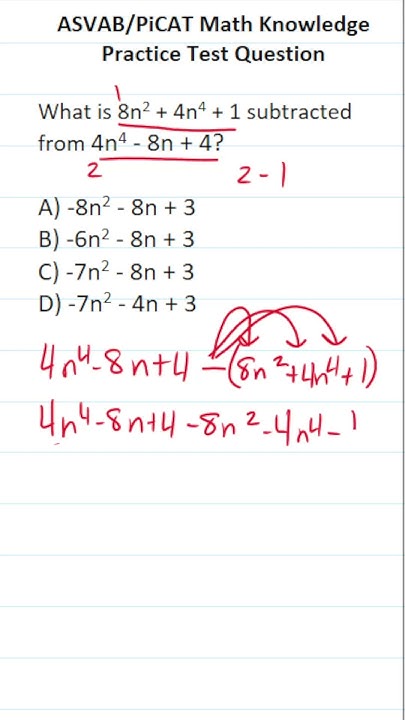 ASVAB/PiCAT Math Knowledge
Practice Test Question
1
What is 8n² + 4n⁴ + 1 subtracted
from 4n⁴ - 8n + 4?
2
2 - 1
A) -8n² - 8n + 3
B) -6n² - 8n + 3
C) -7n² - 8n + 3
D) -7n² - 4n + 3
4n⁴-8n+4 -(8n²+4n⁴+1)
4n⁴-8n+4 -8n²-4n⁴-1